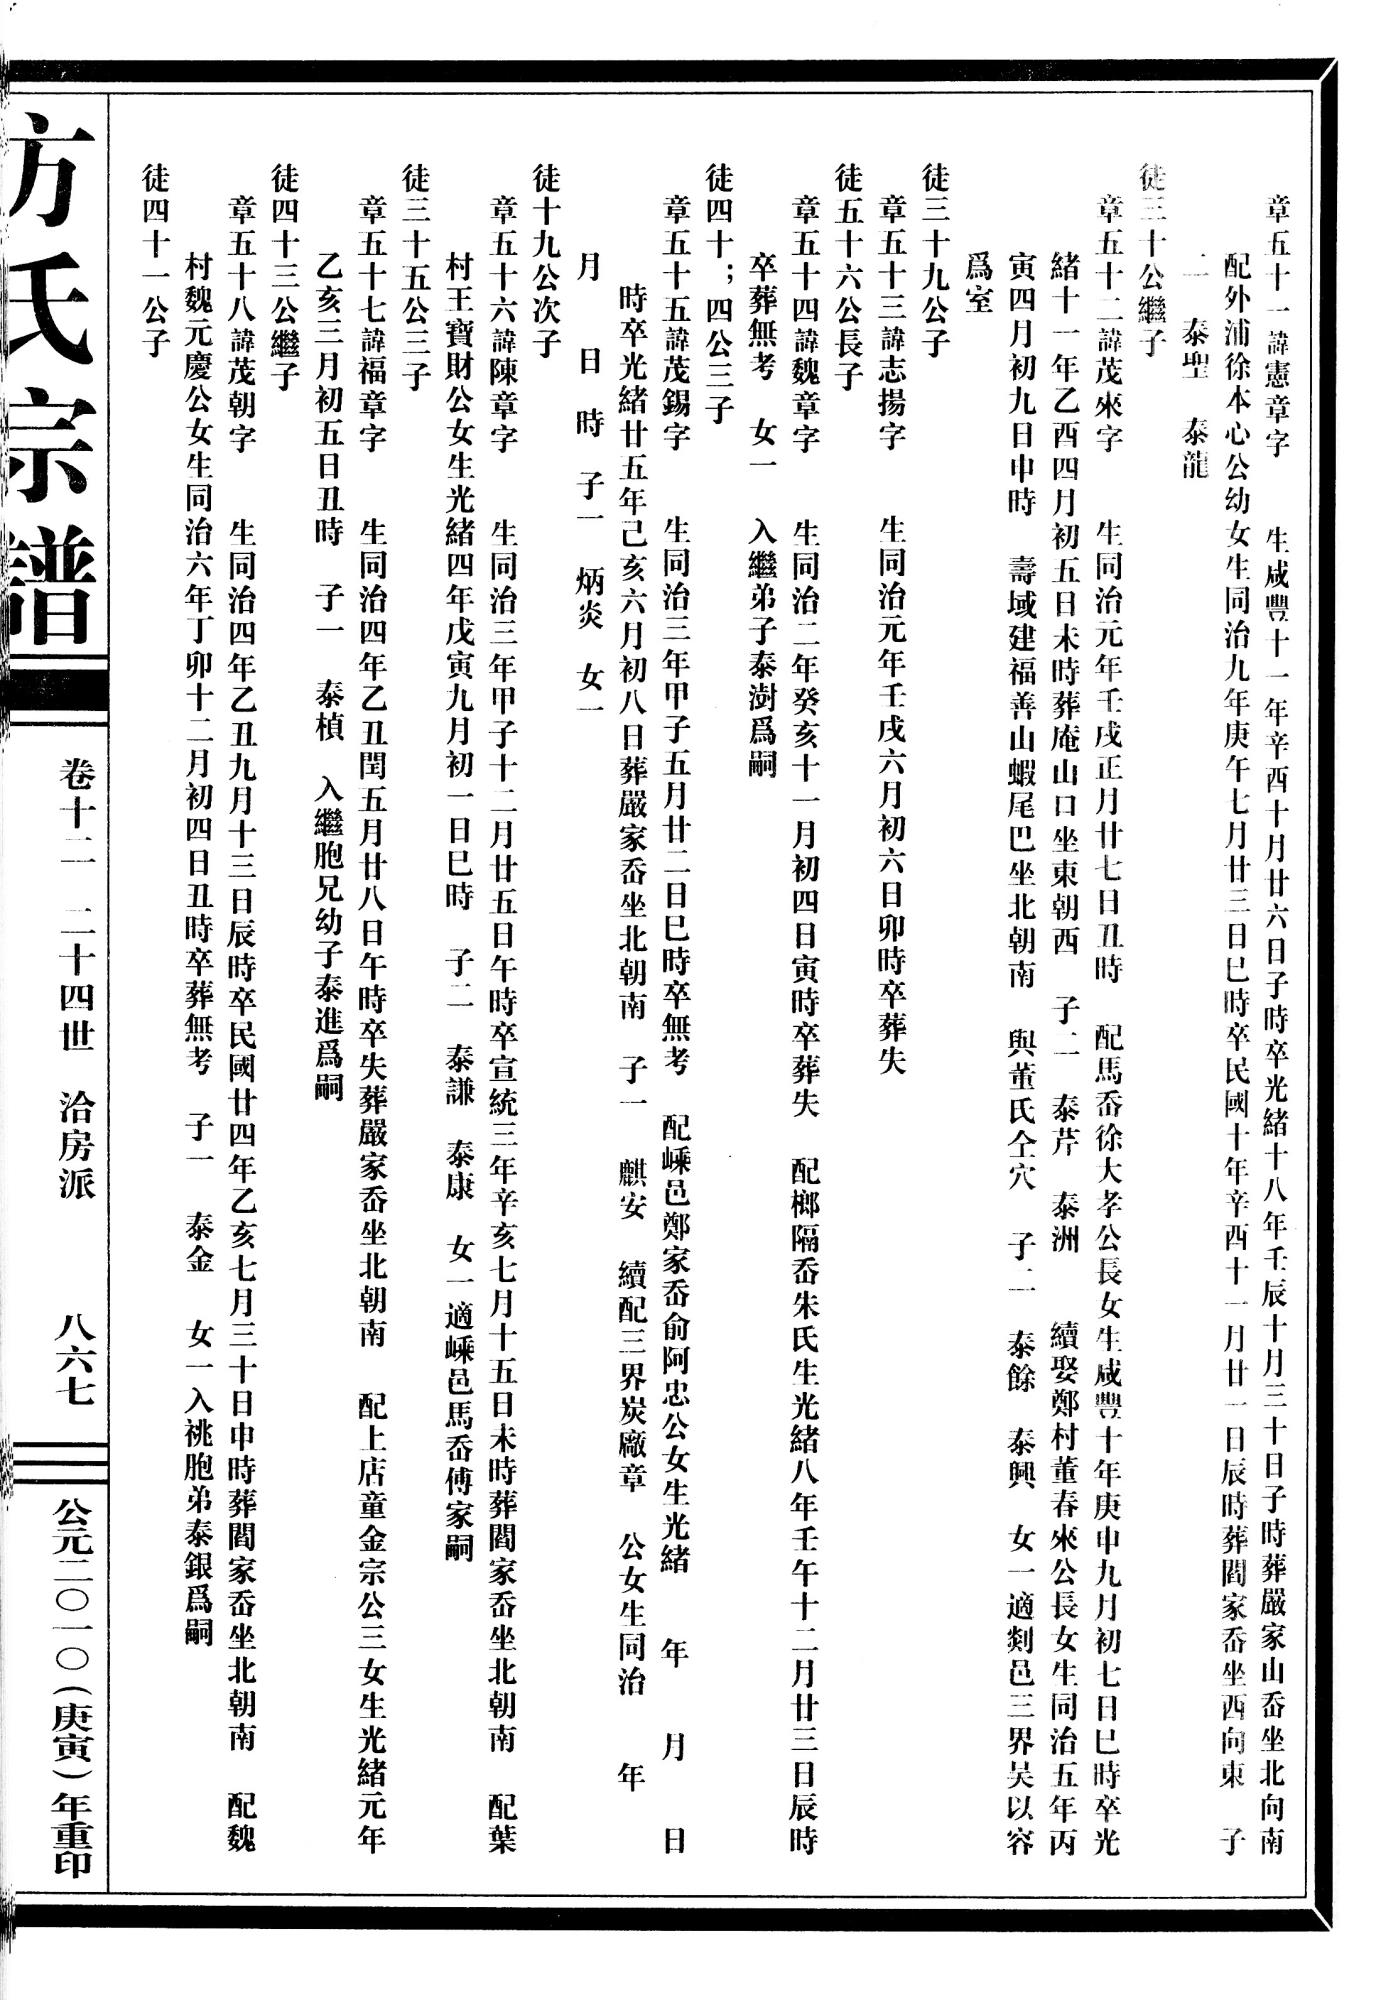 章五十一諱憲章字　生咸豐十一年辛酉十月廿六日子時卒光緒十八年壬辰十月三十日子時葬嚴家山岙坐北向南
配外浦徐本心公幼女生同治九年庚午七月廿三日巳時卒民國十年辛酉十一月廿一日辰時葬閻家岙坐西向東　子
二　泰聖　泰龍
徒三十公繼子
章五十二諱茂來字　生同治元年壬戌正月廿七日丑時　配馬岙徐大孝公長女生咸豐十年庚申九月初七日巳時卒光
緒十一年乙酉四月初五日未時葬庵山口坐東朝西　子二　泰芹　泰洲　續娶鄭村董春來公長女生同治五年丙
寅四月初九日申時　壽域建福善山蝦尾巴坐北朝南　與董氏仝穴　子二　泰餘　泰興　女一適剡邑三界吴以容
爲室
徒三十九公子
章五十三諱志揚字　生同治元年壬戌六月初六日卯時卒葬失
徒五十六公長子
章五十四諱魏章字　生同治二年癸亥十一月初四日寅時卒葬失　配榔隔岙朱氏生光緒八年壬午十二月廿三日辰時
卒葬無考　女一　入繼弟子泰澍爲嗣
徒四十；四公三子
章五十五諱茂錫字　生同治三年甲子五月廿二日巳時卒無考　配嵊邑鄭家岙俞阿忠公女生光緒　年　月　日
時卒光緒廿五年己亥六月初八日葬嚴家岙坐北朝南　子一　麒安　續配三界炭廠章　公女生同治　年
月　日　時　子一　炳炎　女一
徒十九公次子
章五十六諱陳章字　生同治三年甲子十二月廿五日午時卒宣統三年辛亥七月十五日未時葬閻家岙坐北朝南　配葉
村王寶財公女生光緒四年戊寅九月初一日巳時　子二　泰謙　泰康　女一適嵊邑馬岙傅家嗣
徒三十五公三子
章五十七諱福章字　生同治四年乙丑閏五月廿八日午時卒失葬嚴家岙坐北朝南　配上店童金宗公三女生光緒元年
乙亥三月初五日丑時　子一　泰楨　入繼胞兄幼子泰進爲嗣
徒四十三公繼子
章五十八諱茂朝字　生同治四年乙丑九月十三日辰時卒民國廿四年乙亥七月三十日申時葬閻家岙坐北朝南　配魏
村魏元慶公女生同治六年丁卯十二月初四日丑時卒葬無考　子一　泰金　女一入祧胞弟泰銀爲嗣
徒四十一公子
方氏宗譜　卷十二　二十四世　洽房派　八六七　公元二〇一〇（庚寅）年重印